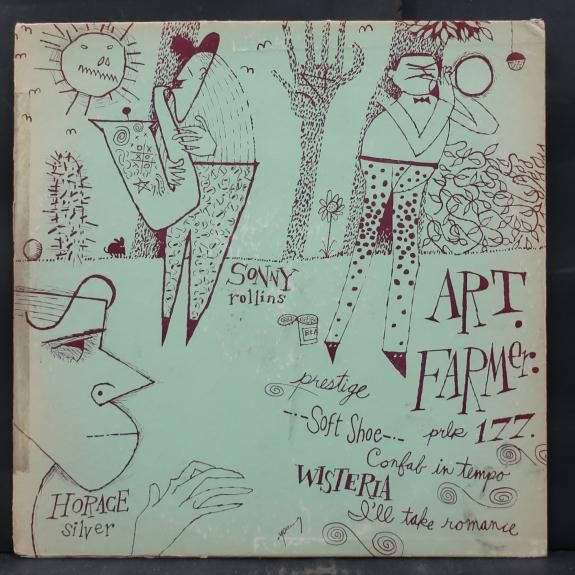 SONNY
rollins
ART.
FARMer.
prestige
prlp 177.
--Soft Shoe---
Confab in tempo
WISTERIA
I'll take romance
HORACE
silver